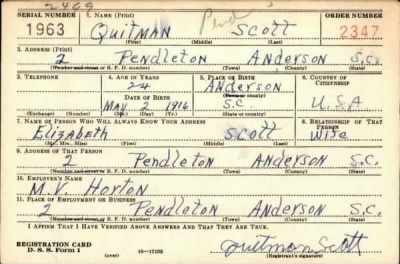 2469
SERIAL NUMBER 1. NAME (Print) ORDER NUMBER
1963 Quitman Scott 2347
(First) (Middle) (Last)
2. ADDRESS (Print)
2 Pendleton Anderson S.C.
(Number and street or R. F. D. number) (Town) (County) (State)
3. TELEPHONE 4. AGE IN YEARS 5. PLACE OF BIRTH 6. COUNTRY OF CITIZENSHIP
24 Anderson
DATE OF BIRTH (Town or county)
May 2 1916 S.C. U.S.A
(Exchange) (Number) (Mo.) (Day) (Yr.) (State or country)
7. NAME OF PERSON WHO WILL ALWAYS KNOW YOUR ADDRESS 8. RELATIONSHIP OF THAT PERSON
Elizabeth Scott Wife
(Mr., Mrs., Miss) (First) (Middle) (Last)
9. ADDRESS OF THAT PERSON
2 Pendleton Anderson S.C.
(Number and street or R. F. D. number) (Town) (County) (State)
10. EMPLOYER'S NAME
M.V. Horton
11. PLACE OF EMPLOYMENT OR BUSINESS
2 Pendleton Anderson S.C.
(Number and street or R. F. D. number) (Town) (County) (State)
I AFFIRM THAT I HAVE VERIFIED ABOVE ANSWERS AND THAT THEY ARE TRUE.
REGISTRATION CARD
D. S. S. Form 1 (over) 16—17105 Quitman Scott
(Registrant's signature)